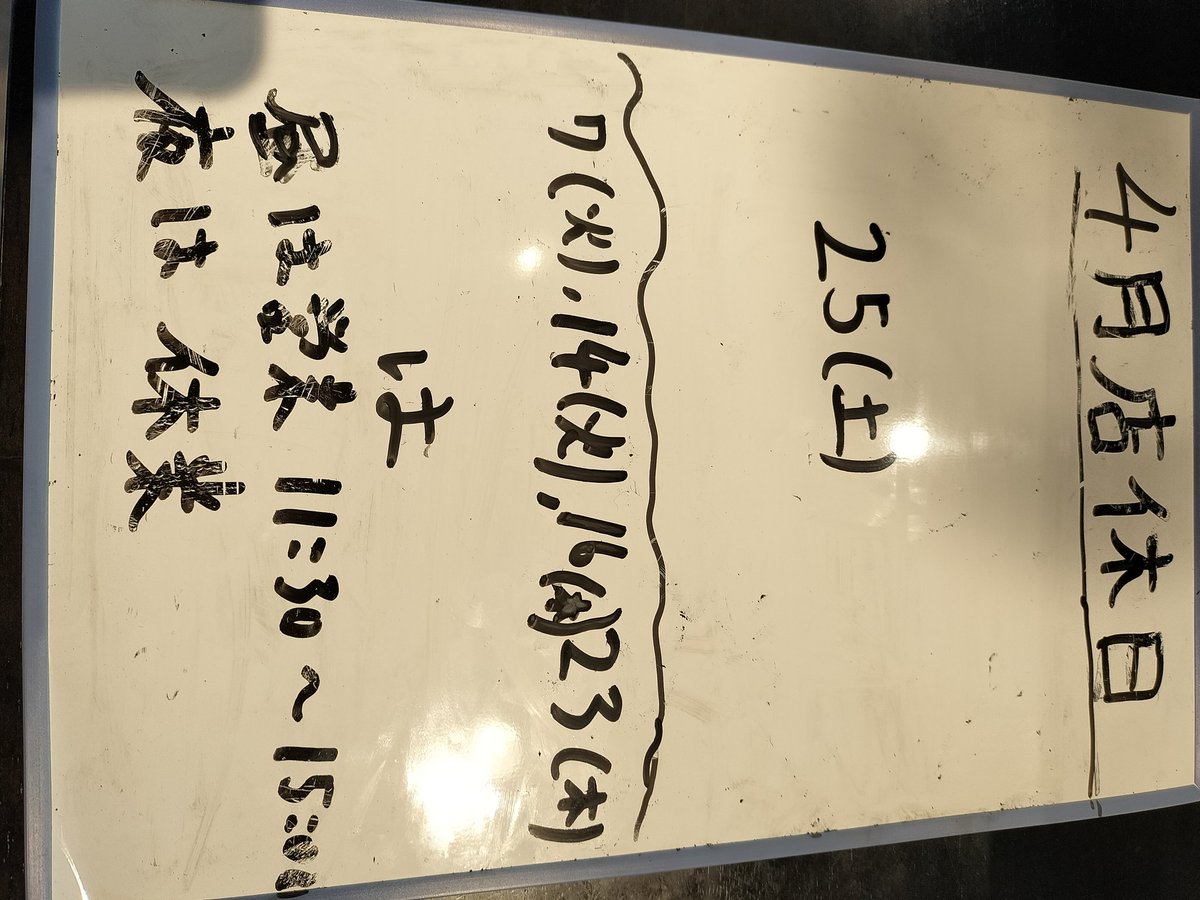 4月店休日
25(土)
7(火).14(火),16(木)23(木)
は
昼は営業 11:30~15:00
夜は休業